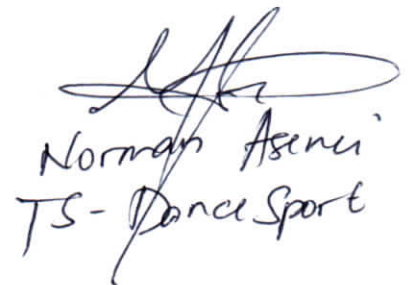 Norman Asenei
TS - DanceSport